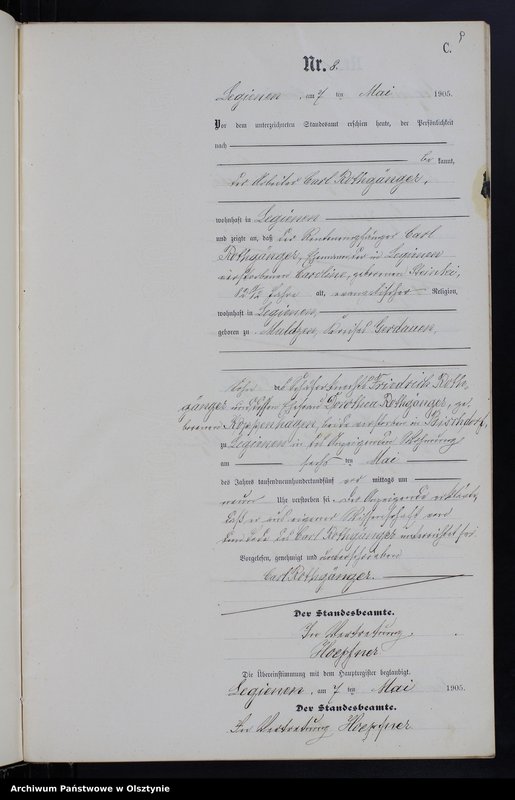 C. 9
Nr. 8.
Legienen, am 7 ten Mai 1905.
Vor dem unterzeichneten Standesamt erschien heute, der Persönlichkeit
nach
be kannt,
der Arbeiter Carl Rothgänger,
wohnhaft in Legienen
und zeigte an, daß der Rentenempfänger Carl
Rothgänger, Ehemann der in Legienen
verstorbenen Caroline, geborenen
82 1/2 Jahre alt, evangelischer Religion,
wohnhaft in Legienen,
geboren zu Muldzen, Kreises Gerdauen,
Sohn des Friedrich Roth-
gänger und dessen Ehefrau Dorothea Rothgänger, ge-
borenen Koppenhagen, beide verstorben in Bischdorf,
zu Legienen in des Anzeigenden Wohnung
am sechs ten Mai
des Jahres tausendneunhundertundfünf vor mittags um
neun Uhr verstorben sei. Der Anzeigende erklärte,
daß er aus eigener Wissenschaft von
dem Tode des Carl Rothgänger unterrichtet sei.
Vorgelesen, genehmigt und unterschrieben
Carl Rothgänger.
Der Standesbeamte.
In Vertretung.
Hoepfner
Die Übereinstimmung mit dem Hauptregister beglaubigt.
Legienen, am 7 ten Mai 1905.
Der Standesbeamte.
In Vertretung Hoepfner
Archiwum Państwowe w Olsztynie